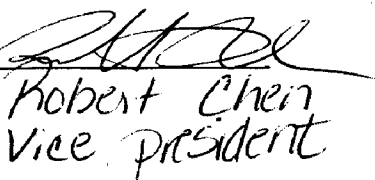 Robert Chen
Vice president